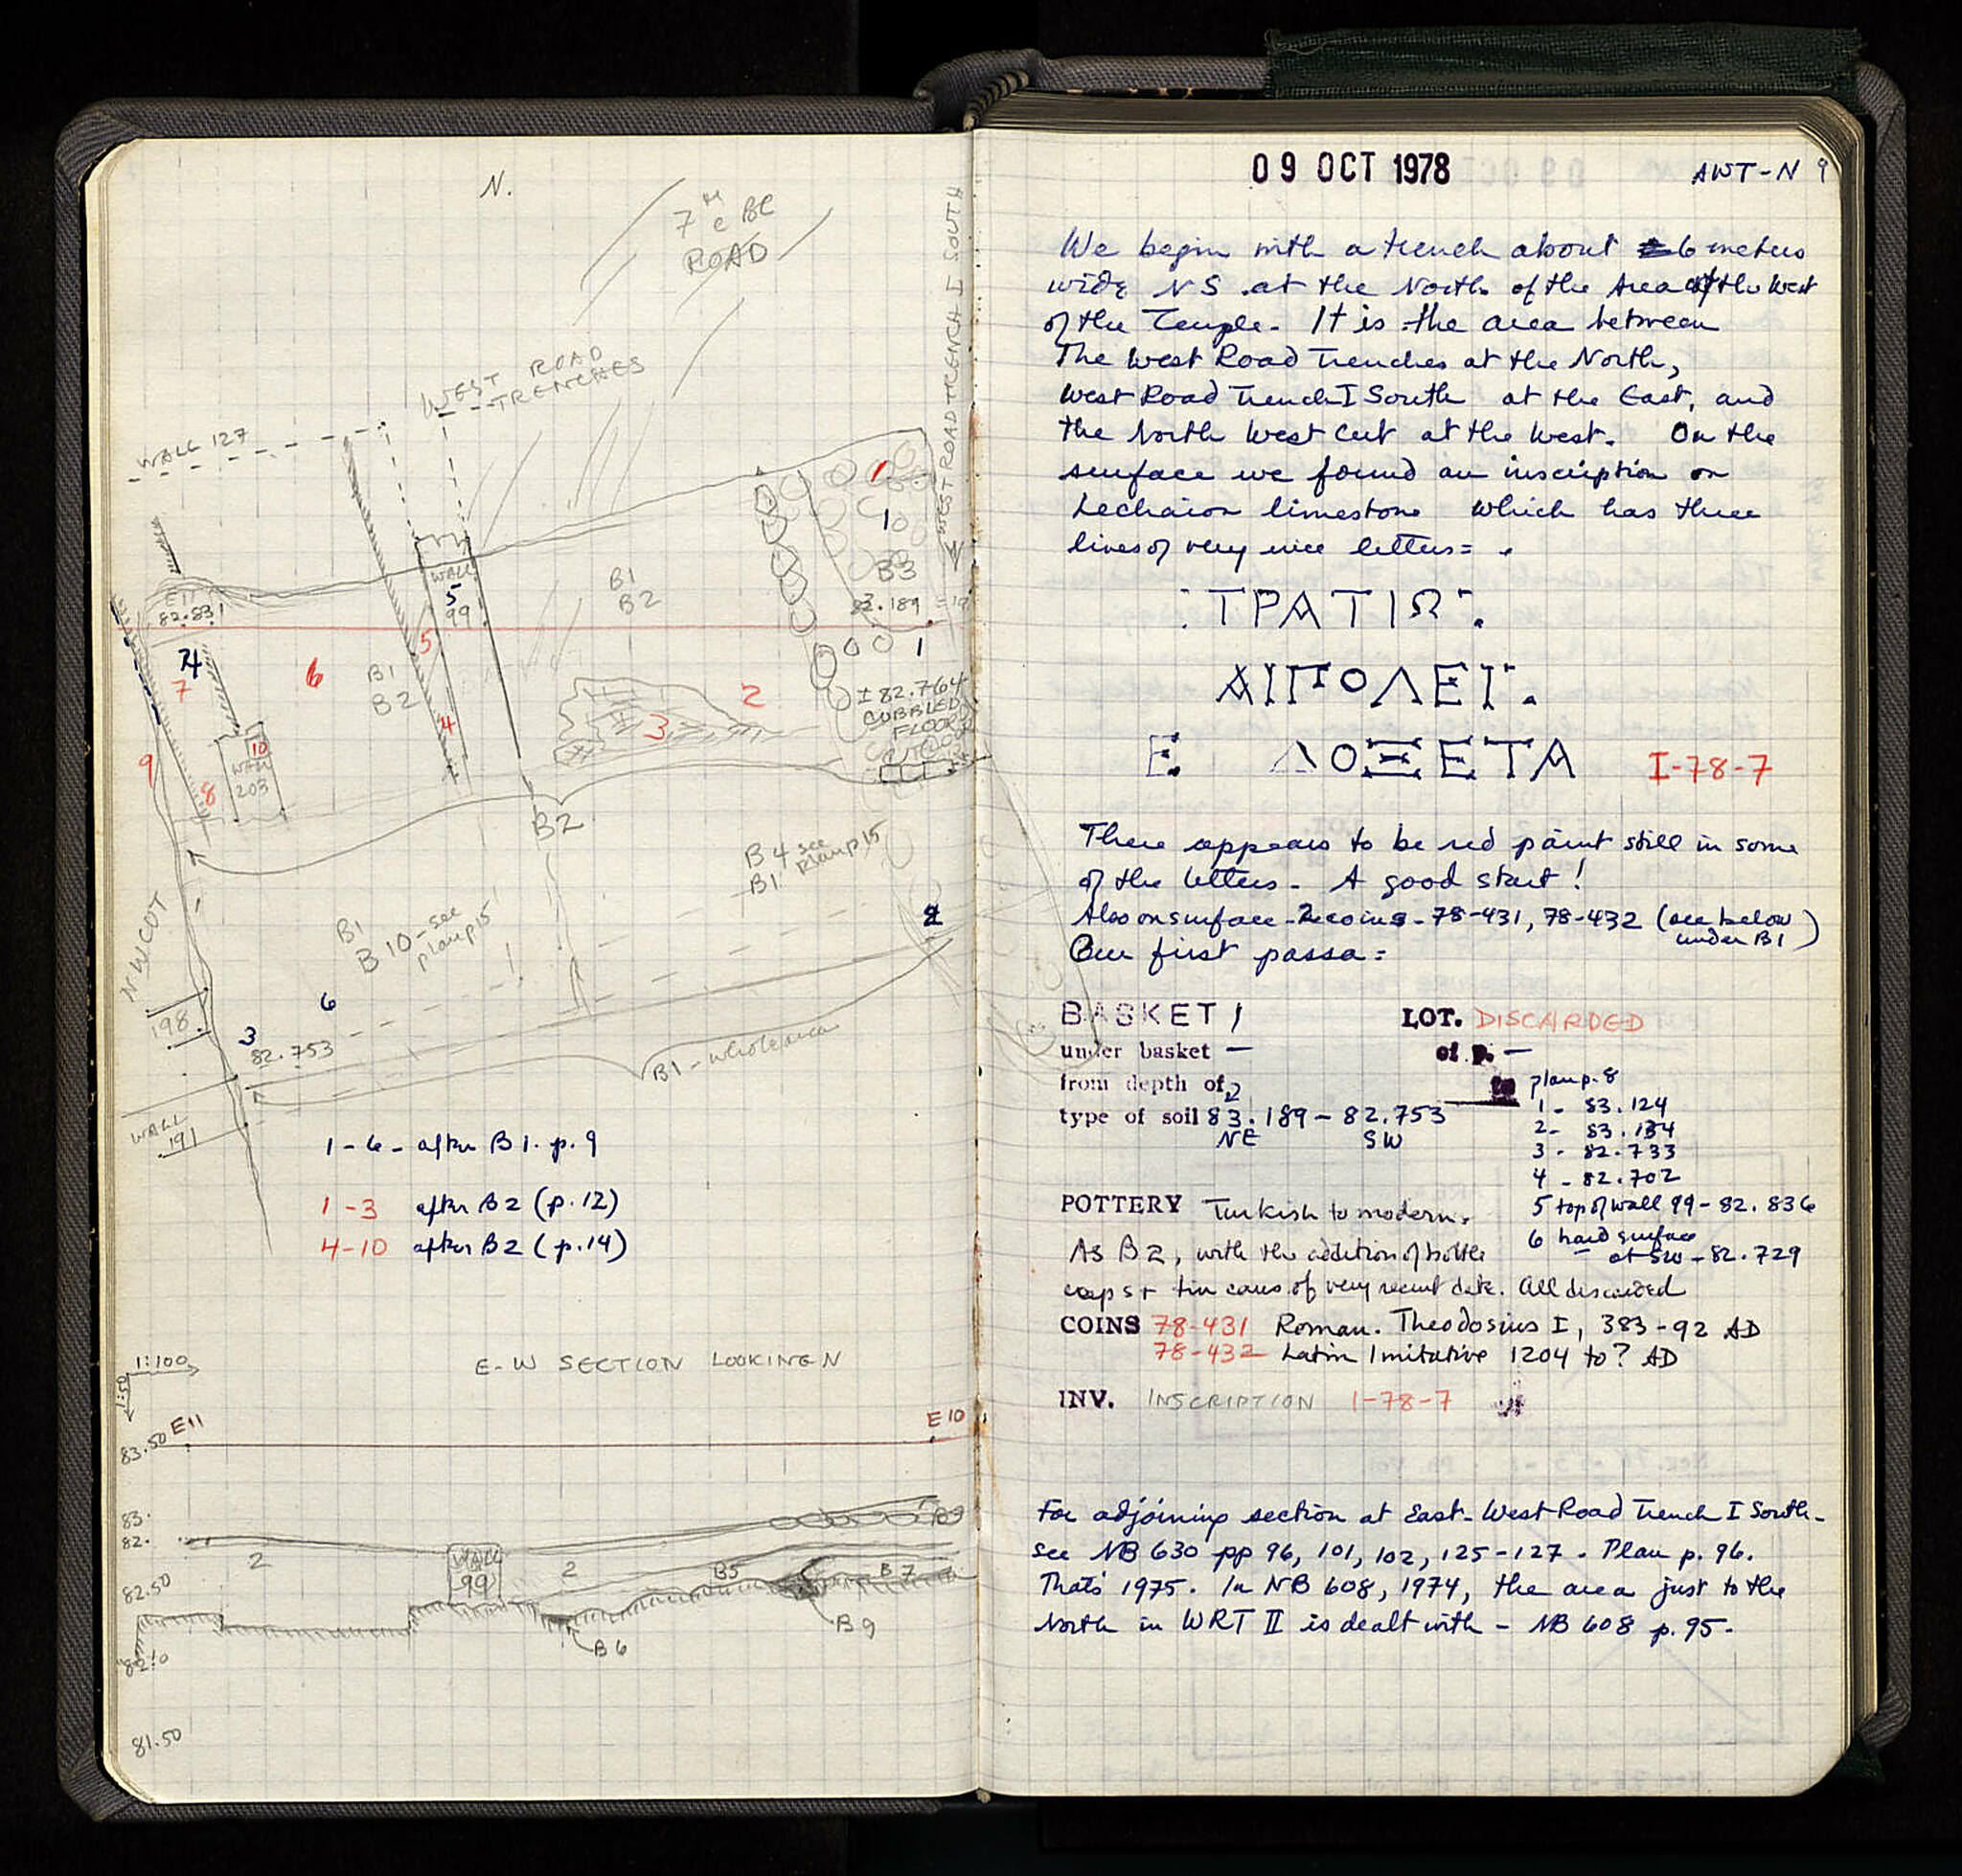 N.
7 TH C BC
ROAD
WEST ROAD TRENCH I SOUTH
WEST ROAD
TRENCHES
WALL 127
1
10
B3
WALL
5
99
B1
B2
E11
82.831
83.189
5
1
7
6
B1
B2
2
± 82.764
COBBLED
FLOOR
4
3
9
10
WALL
203
8
B2
B4 see
B1 plan p 15
2
NW COT
B1
B10 - see
plan p 15
6
198
3
82.753
B1 - whole area
WALL
191
1 - 6 - after B1. p. 9
1 - 3 after B2 (p. 12)
4-10 after B2 (p. 14)
1:100
1:50
E-W SECTION LOOKING N
E11
E10
83.50
83.
82.
2
WALL
99
2
B5
B7
82.50
B9
B6
81.50
09 OCT 1978
AWT-N 9
We begin with a trench about 6 meters
wide NS at the North of the Area of the West
of the Temple. It is the area between
the West Road Trenches at the North,
West Road Trench I South at the East, and
the North West Cut at the West. On the
surface we found an inscription on
Lechaion limestone which has three
lines of very nice letters: .
ΤΡΑΤΙΩ
ΑΙΠΟΛΕΙ
Ε ΛΟΞΕΤΑ I-78-7
There appears to be red paint still in some
of the letters. A good start!
Also on surface - 2 coins - 78-431, 78-432 (see below
under B1)
Our first pass:
BASKET 1 LOT. DISCARDED
under basket — of p. —
from depth of plan p. 8
type of soil 83.189 - 82.753
NE SW
1 - 83.124
2 - 83.134
3 - 82.733
4 - 82.702
5 top of wall 99 - 82.836
6 hard surface
at SW - 82.729
POTTERY Turkish to modern.
As B2, with the addition of bottle
caps + tin cans of very recent date. All discarded
COINS 78-431 Roman. Theodosius I, 383-92 AD
78-432 Latin Imitative 1204 to? AD
INV. INSCRIPTION I-78-7
For adjoining section at East - West Road Trench I South -
see NB 630 pp 96, 101, 102, 125-127. Plan p. 96.
That's 1975. In NB 608, 1974, the area just to the
North in WRT II is dealt with - NB 608 p. 95.